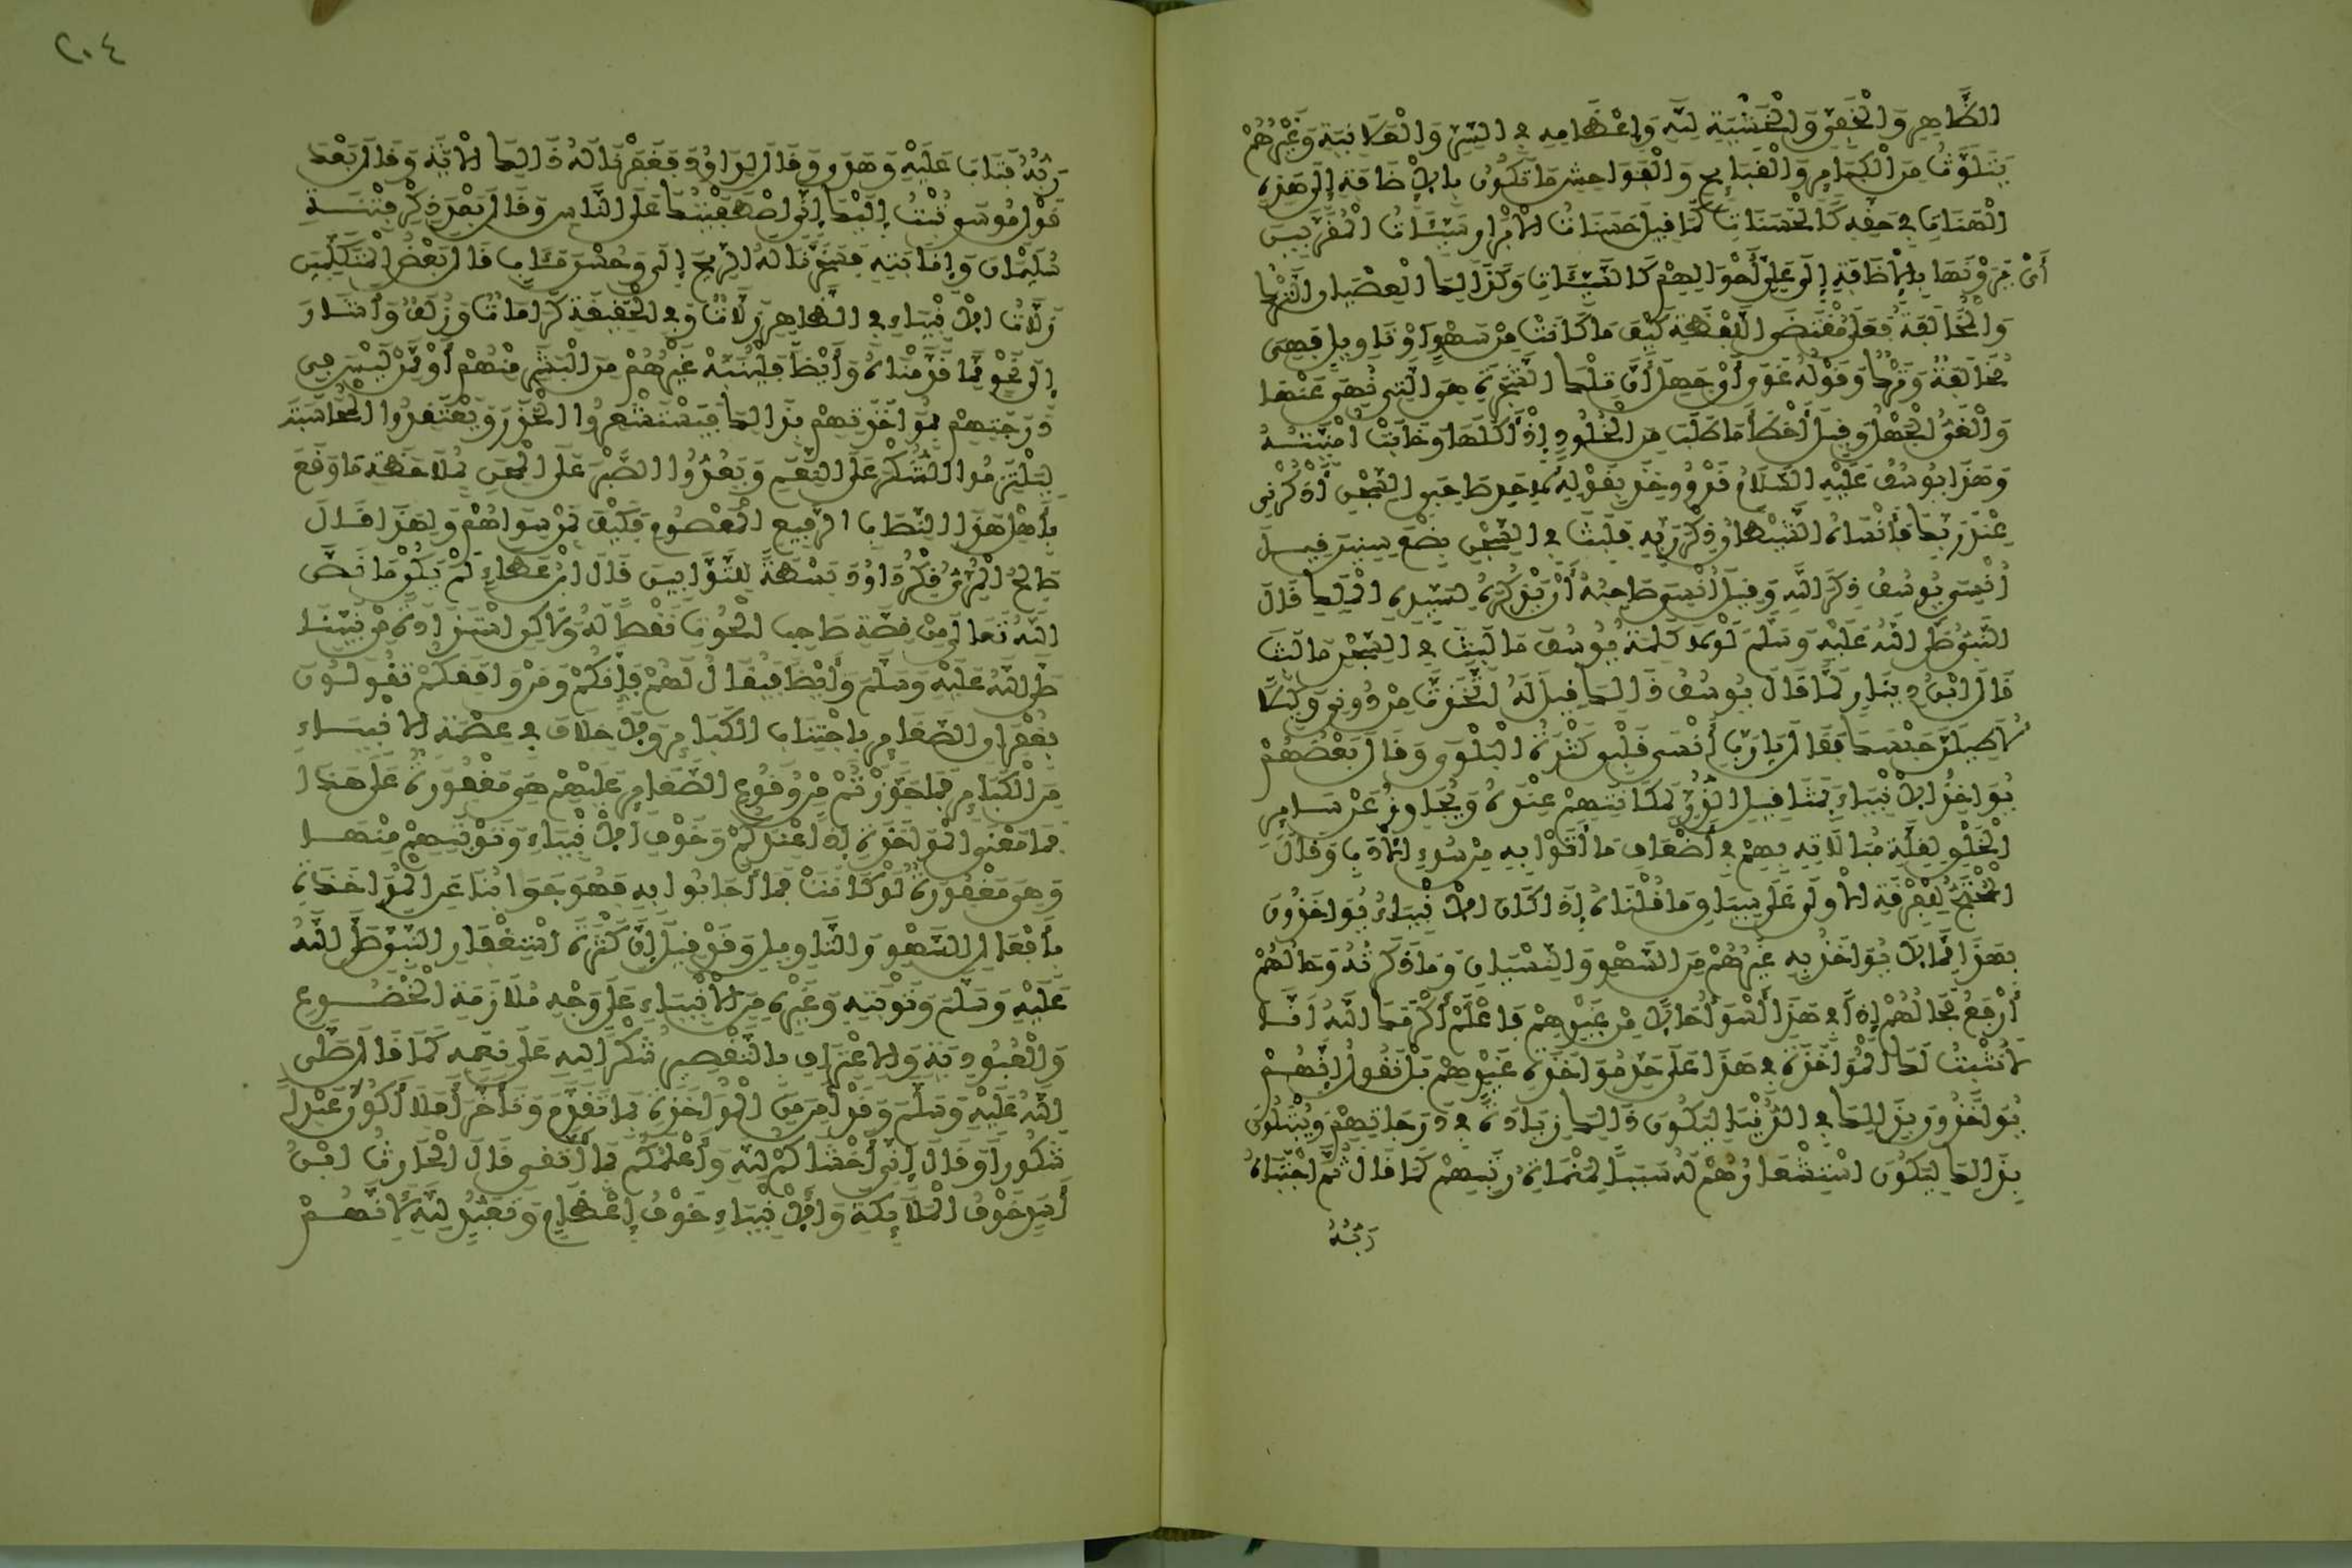 الظَّاهِرِ وَالْخَفِيِّ وَالْخَشْيَةِ لِلَّهِ وَإِعْظَامِهِ فِي السِّرِّ وَالْعَلَانِيَةِ وَغَيْرُهُمْ
يَتَلَوَّثُ مِنَ الْكَبَائِرِ وَالْقَبَائِحِ وَالْفَوَاحِشِ مَا تَكُونُ بِالْإِضَافَةِ إِلَى هَذِهِ
الْهَنَاتِ فِي حَقِّهِ كَالْحَسَنَاتِ كَمَا قِيلَ حَسَنَاتُ الْأَبْرَارِ سَيِّئَاتُ الْمُقَرَّبِينَ
أَيْ يَرَوْنَهَا بِالْإِضَافَةِ إِلَى عَلِيِّ أَحْوَالِهِمْ كَالسَّيِّئَاتِ وَكَذَلِكَ الْعِصْيَانُ التَّرْكُ
وَالْمُخَالَفَةُ فَعَلَى مُقْتَضَى اللَّفْظَةِ كَيْفَ مَا كَانَتْ مِنْ سَهْوٍ أَوْ تَأْوِيلٍ فَهِيَ
مُخَالَفَةٌ وَتَرْكٌ وَقَوْلُهُ غَوَى أَيْ جَهِلَ أَنَّ تِلْكَ الشَّجَرَةَ هِيَ الَّتِي نُهِيَ عَنْهَا
وَالْغَيُّ الْجَهْلُ وَقِيلَ أَخْطَأَ مَا طَلَبَ مِنَ الْخُلُودِ إِذْ أَكَلَهَا وَخَابَتْ أُمْنِيَّتُهُ
وَهَذَا يُوسُفُ عَلَيْهِ السَّلَامُ قَدْ وُوخِذَ بِقَوْلِهِ لِأَحَدِ صَاحِبَيِ السِّجْنِ اذْكُرْنِي
عِنْدَ رَبِّكَ فَأَنْسَاهُ الشَّيْطَانُ ذِكْرَ رَبِّهِ فَلَبِثَ فِي السِّجْنِ بِضْعَ سِنِينَ قِيلَ
أُنْسِيَ يُوسُفُ ذِكْرَ اللَّهِ وَقِيلَ أُنْسِيَ صَاحِبُهُ أَنْ يَذْكُرَهُ لِسَيِّدِهِ الْمَلِكِ قَالَ
النَّبِيُّ صَلَّى اللَّهُ عَلَيْهِ وَسَلَّمَ لَوْلَا كَلِمَةُ يُوسُفَ مَا لَبِثَ فِي السِّجْنِ مَا لَبِثَ
قَالَ ابْنُ دِينَارٍ لَمَّا قَالَ يُوسُفُ ذَلِكَ قِيلَ لَهُ اتَّخَذْتَ مِنْ دُونِي وَكِيلًا
لَأُطِيلَنَّ حَبْسَكَ فَقَالَ يَارَبِّ أَنْسَى قَلْبِي كَثْرَةُ الْبَلْوَى وَقَالَ بَعْضُهُمْ
يُوَاخِذُ الْأَنْبِيَاءَ بِمَثَاقِيلِ الذَّرِّ لِمَكَانَتِهِمْ عِنْدَهُ وَيُجَاوِزُ عَنْ سَائِرِ
الْخَلْقِ لِقِلَّةِ مُبَالَاتِهِ بِهِمْ فِي أَضْعَافِ مَا أَتَوْا بِهِ مِنْ سُوءِ الْأَدَبِ وَقَالَ
الْمُحْتَجُّ لِلْفِرْقَةِ الْأُولَى عَلَى سِيَاقِ مَا قُلْنَاهُ إِذَا كَانَ الْأَنْبِيَاءُ يُوَاخَذُونَ
بِهَذَا مِمَّا لَا يُوَاخَذُ بِهِ غَيْرُهُمْ مِنَ السَّهْوِ وَالنِّسْيَانِ وَمَا ذَكَرْتُهُ وَحَالُهُمْ
أَرْفَعُ فَحَالُهُمْ إِذًا فِي هَذَا أَسْوَأُ حَالًا مِنْ غَيْرِهِمْ فَاعْلَمْ أَكْرَمَكَ اللَّهُ أَنَّا
لَا نُثْبِتُ لَكَ الْمُؤَاخَذَةَ فِي هَذَا عَلَى حَدِّ مُؤَاخَذَةِ غَيْرِهِمْ بَلْ نَقُولُ إِنَّهُمْ
يُوَاخَذُونَ بِذَلِكَ فِي الدُّنْيَا لِيَكُونَ ذَلِكَ زِيَادَةً فِي دَرَجَاتِهِمْ وَيُبْتَلَوْنَ
بِذَلِكَ لِيَكُونَ اسْتِشْعَارُهُمْ لَهُ سَبَبًا لِمَنْمَاةِ رُتَبِهِمْ كَمَا قَالَ ثُمَّ اجْتَبَاهُ
رَبُّهُ
٢٠٤
رَبُّهُ فَتَابَ عَلَيْهِ وَهَدَى وَقَالَ لِدَاوُدَ فَغَفَرْنَا لَهُ ذَلِكَ الْآيَةَ وَقَالَ بَعْدَ
قَوْلِ مُوسَى تُبْتُ إِلَيْكَ إِنِّي اصْطَفَيْتُكَ عَلَى النَّاسِ وَقَالَ بَعْدَ ذِكْرِ فِتْنَةِ
سُلَيْمَانَ وَإِنَابَتِهِ فَسَخَّرْنَا لَهُ الرِّيحَ إِلَى وَحُسْنَ مَئَابٍ قَالَ بَعْضُ الْمُتَكَلِّمِينَ
زَلَّاتُ الْأَنْبِيَاءِ فِي الظَّاهِرِ زَلَّاتٌ وَفِي الْحَقِيقَةِ كَرَامَاتٌ وَزُلَفٌ وَأَشَارَ
إِلَى نَحْوٍ مِمَّا قَدَّمْنَاهُ وَأَيْضًا فَلْيُنَبَّهْ غَيْرُهُمْ مِنَ الْبَشَرِ مِنْهُمْ أَوْ مِمَّنْ لَيْسَ فِي
دَرَجَتِهِمْ بِمُؤَاخَذَتِهِمْ بِذَلِكَ فَيَسْتَشْعِرُوا الْحَذَرَ وَيَعْتَقِدُوا الْمُحَاسَبَةَ
لِيَلْتَزِمُوا الشُّكْرَ عَلَى النِّعَمِ وَيُعِدُّوا الصَّبْرَ عَلَى الْمِحَنِ بِمُلَاحَظَةِ مَا وَقَعَ
بِأَهْلِ هَذَا النِّصَابِ الرَّفِيعِ الْمَعْصُومِ فَكَيْفَ بِمَنْ سِوَاهُمْ وَلِهَذَا قَالَ
صَالِحٌ الْمُرِّيُّ ذِكْرُ دَاوُدَ بَسْطَةٌ لِلتَّوَّابِينَ قَالَ ابْنُ عَطَاءٍ لَمْ يَكُنْ مَا نَصَّ
اللَّهُ تَعَالَى مِنْ قِصَّةِ صَاحِبِ الْحُوتِ نَقْصًا لَهُ وَلَاكِنِ اسْتِزَادَةً مِنْ نَبِيِّنَا
صَلَّى اللَّهُ عَلَيْهِ وَسَلَّمَ وَأَيْضًا فَيُقَالُ لَهُمْ فَإِنَّكُمْ وَمَنْ وَافَقَكُمْ تَقُولُونَ
بِغُفْرَانِ الصَّغَائِرِ بِاجْتِنَابِ الْكَبَائِرِ وَلَا خِلَافَ فِي عِصْمَةِ الْأَنْبِيَاءِ
مِنَ الْكَبَائِرِ فَمَا جَوَّزْتُمْ مِنْ وُقُوعِ الصَّغَائِرِ عَلَيْهِمْ هِيَ مَغْفُورَةٌ عَلَى هَذَا
فَمَا مَعْنَى الْمُؤَاخَذَةِ إِذًا عِنْدَكُمْ وَخَوْفِ الْأَنْبِيَاءِ وَتَوْبَتِهِمْ مِنْهَا
وَهِيَ مَغْفُورَةٌ لَوْ كَانَتْ فَمَا أَجَابُوا بِهِ فَهُوَ جَوَابُنَا عَنِ الْمُؤَاخَذَةِ
بِأَفْعَالِ السَّهْوِ وَالتَّأْوِيلِ وَقَدْ قِيلَ إِنَّ كَثْرَةَ اسْتِغْفَارِ النَّبِيِّ صَلَّى اللَّهُ
عَلَيْهِ وَسَلَّمَ وَتَوْبَتِهِ وَغَيْرِهِ مِنَ الْأَنْبِيَاءِ عَلَى وَجْهِ مُلَازَمَةِ الْخُضُوعِ
وَالْعُبُودِيَّةِ وَالِاعْتِرَافِ بِالتَّقْصِيرِ شُكْرًا لِلَّهِ عَلَى نِعَمِهِ كَمَا قَالَ صَلَّى
اللَّهُ عَلَيْهِ وَسَلَّمَ وَقَدْ أَمِنَ مِنَ الْمُؤَاخَذَةِ بِمَا تَقَدَّمَ وَتَأَخَّرَ أَفَلَا أَكُونُ عَبْدًا
شَكُورًا وَقَالَ إِنِّي أَخْشَاكُمْ لِلَّهِ وَأَعْلَمُكُمْ بِمَا أَتَّقِي قَالَ الْحَارِثُ ابْنُ
أَسَدٍ خَوْفُ الْمَلَائِكَةِ وَالْأَنْبِيَاءِ خَوْفُ إِعْظَامٍ وَتَعَبُّدٍ لِلَّهِ لِأَنَّهُمْ